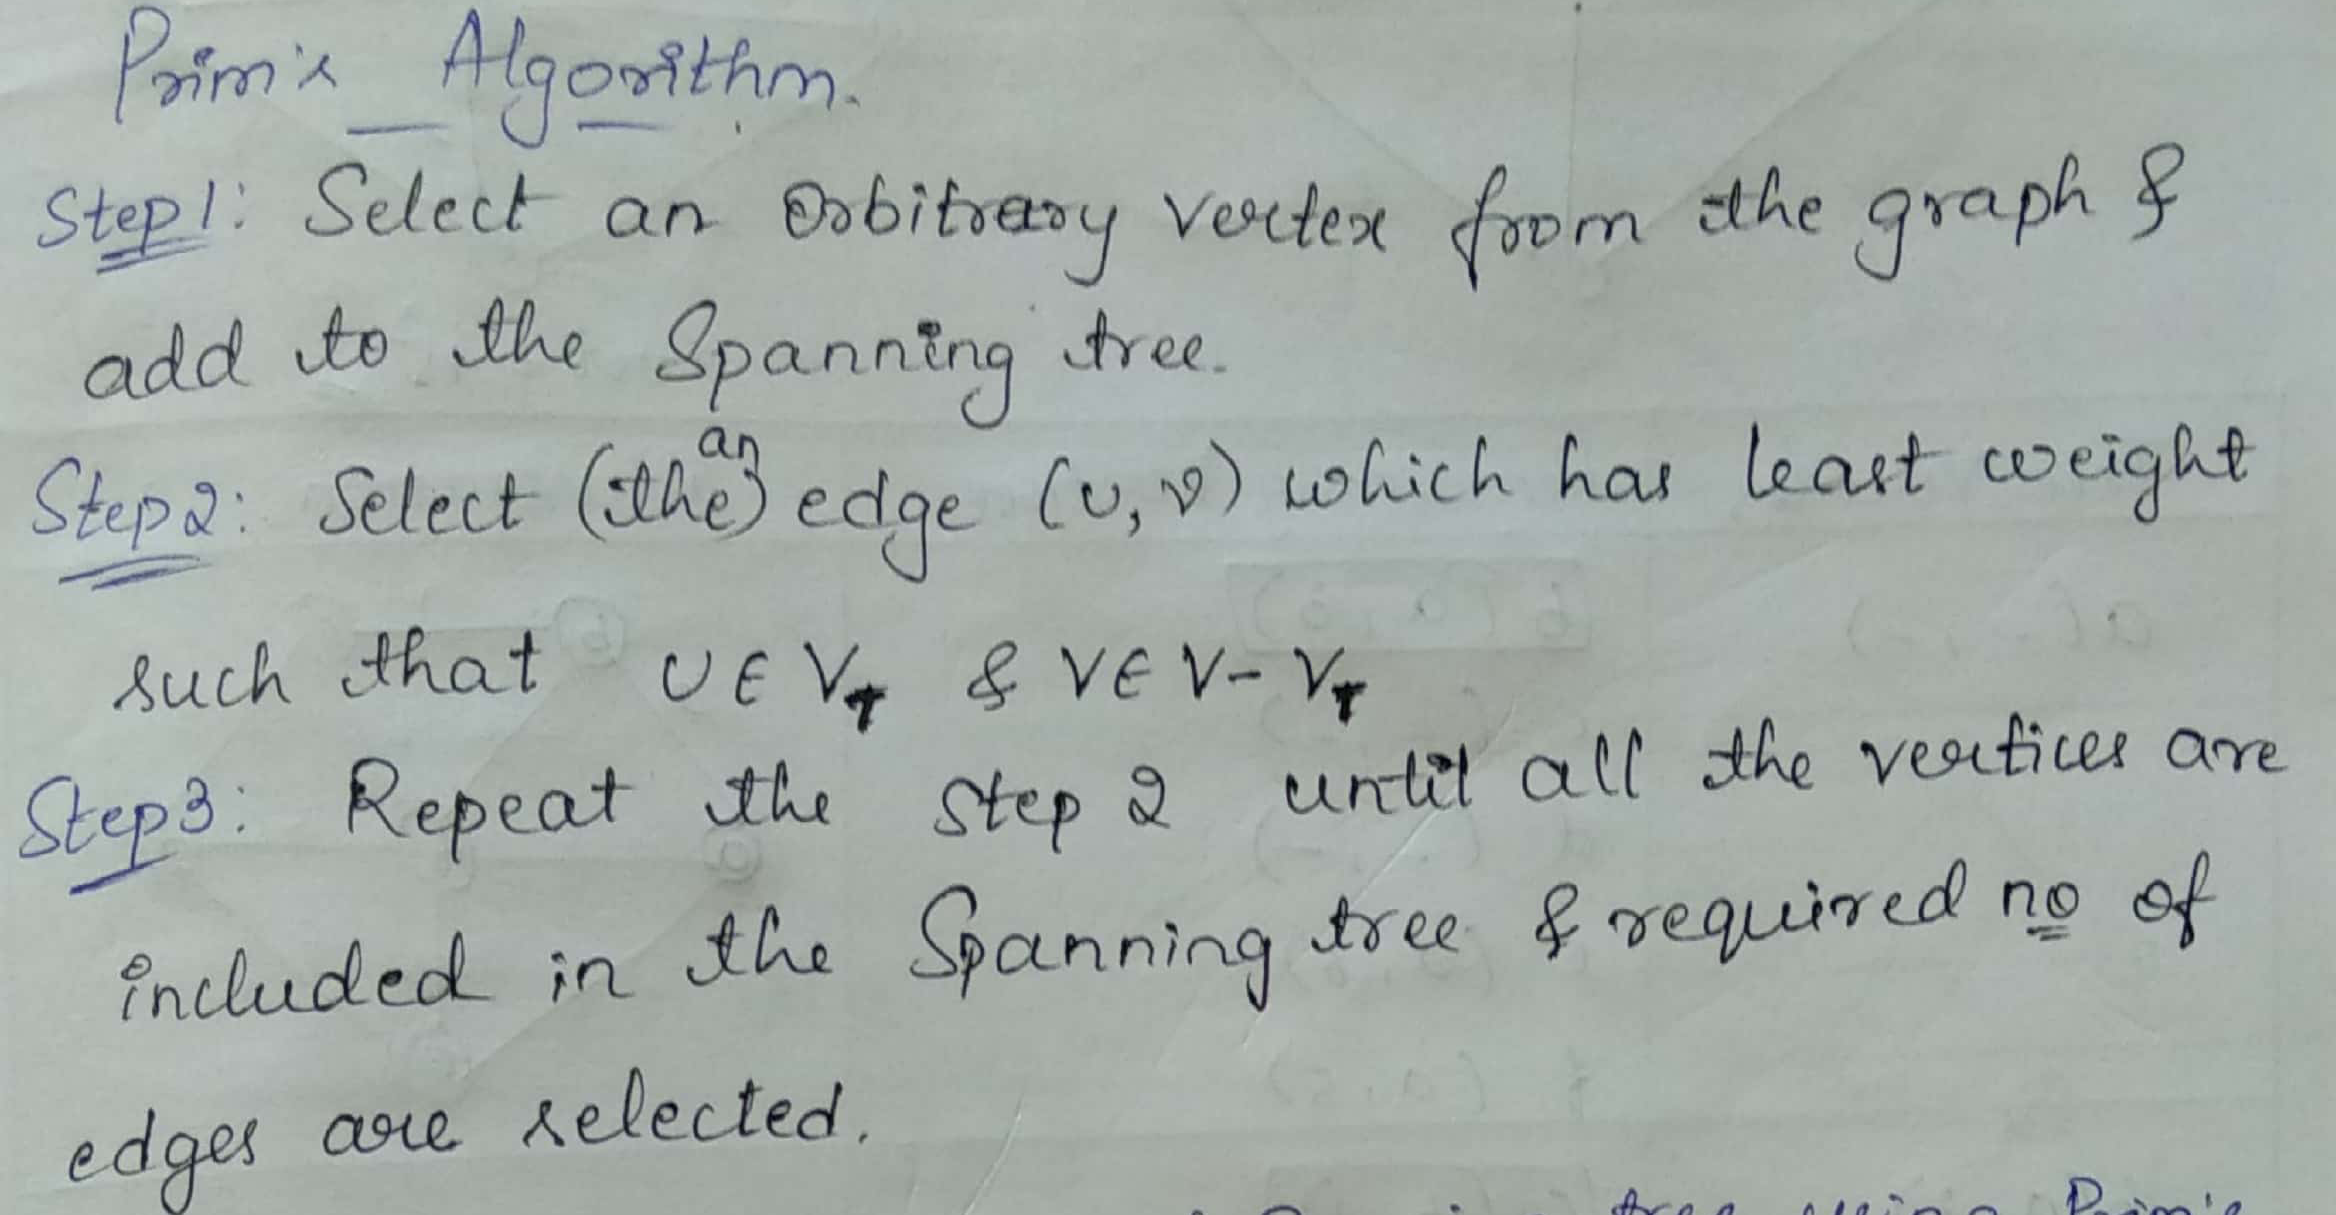 Prim's Algorithm.
Step1: Select an Orbitrary vertex from the graph &
add to the Spanning tree.
an
Step2: Select (the) edge (u, v) which has least weight
such that U ∈ V_T & V ∈ V - V_T
Step3: Repeat the step 2 until all the vertices are
included in the Spanning tree & required no of
edges are selected.
tree using Prim's